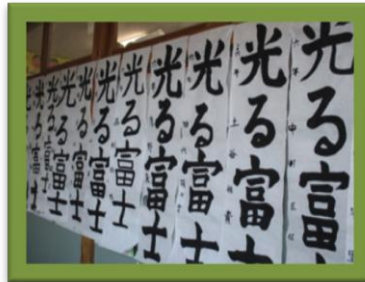 光る富士
光る富士
光る富士
光る富士
光る富士
光る富士
光る富士
光る富士
光る富士
光る富士